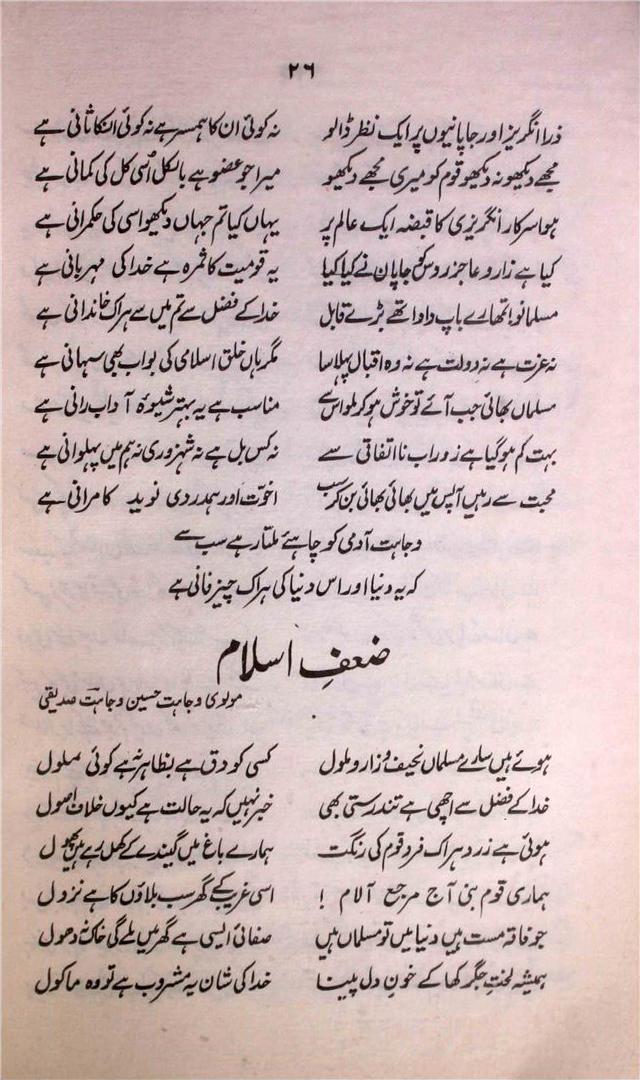 ۲۶
ذرا انگریز اور جاپانیوں پر ایک نظر ڈالو نہ کوئی ان کا ہمسر ہے نہ کوئی انکا ثانی ہے
مجھے دیکھو نہ دیکھو قوم کو میری مجھے دیکھو میرا جو عضو ہے بالکل اُسی کل کی کمانی ہے
ہوا سرکار انگریزی کا قبضہ ایک عالم پر یہاں کیا تم جہاں دیکھو اسی کی حکمرانی ہے
کیا ہے زار و عاجز روس کو جاپان نے کیا کیا یہ قومیت کا ثمرہ ہے خدا کی مہربانی ہے
مسلمانو تمھارے باپ دادا تھے بڑے قابل خدا کے فضل سے تم میں سے ہر اک خاندانی ہے
نہ عزت ہے نہ دولت ہے نہ وہ اقبال پہلا سا مگر ہاں خلق اسلامی کی بو اب بھی سہانی ہے
مسلماں بھائی جب آئے تو خوش ہو کر ملو اس سے مناسب ہے یہ بہتر شیوۂ آداب رانی ہے
بہت کم ہو گیا ہے زور اب نا اتفاقی سے نہ کس بل ہے نہ شہزوری نہ ہم میں پہلوانی ہے
محبت سے رہیں آپس میں بھائی بھائی بن کر سب اخوّت اور ہمدردی نوید کامرانی ہے
وجاہت آدمی کو چاہئے ملتا رہے سب سے
کہ یہ دنیا اور اس دنیا کی ہر اک چیز فانی ہے
ضعفِ اسلام
مولوی وجاہت حسین وجاہت صدیقی
ہوئے ہیں سارے مسلماں نحیف و زار و ملول کسی کو دق ہے بظاہر نہ ہے کوئی مسلول
خدا کے فضل سے اچھی ہے تندرستی بھی خبر نہیں کہ یہ حالت ہے کیوں خلاف اصول
ہوئی ہے زرد ہر اک فرد قوم کی رنگت ہمارے باغ میں گیندے کے کھل رہے ہیں پھول
ہماری قوم بنی آج مرجع آلام ! اسی غریب کے گھر سب بلاؤں کا ہے نزول
جو فاقہ مست ہیں دنیا میں تو مسلماں ہیں صفائی ایسی ہے گھر میں ملے گی خاک نہ دھول
ہمیشہ لختِ جگر کھا کے خونِ دل پینا خدا کی شان یہ مشروب ہے تو وہ ماکول